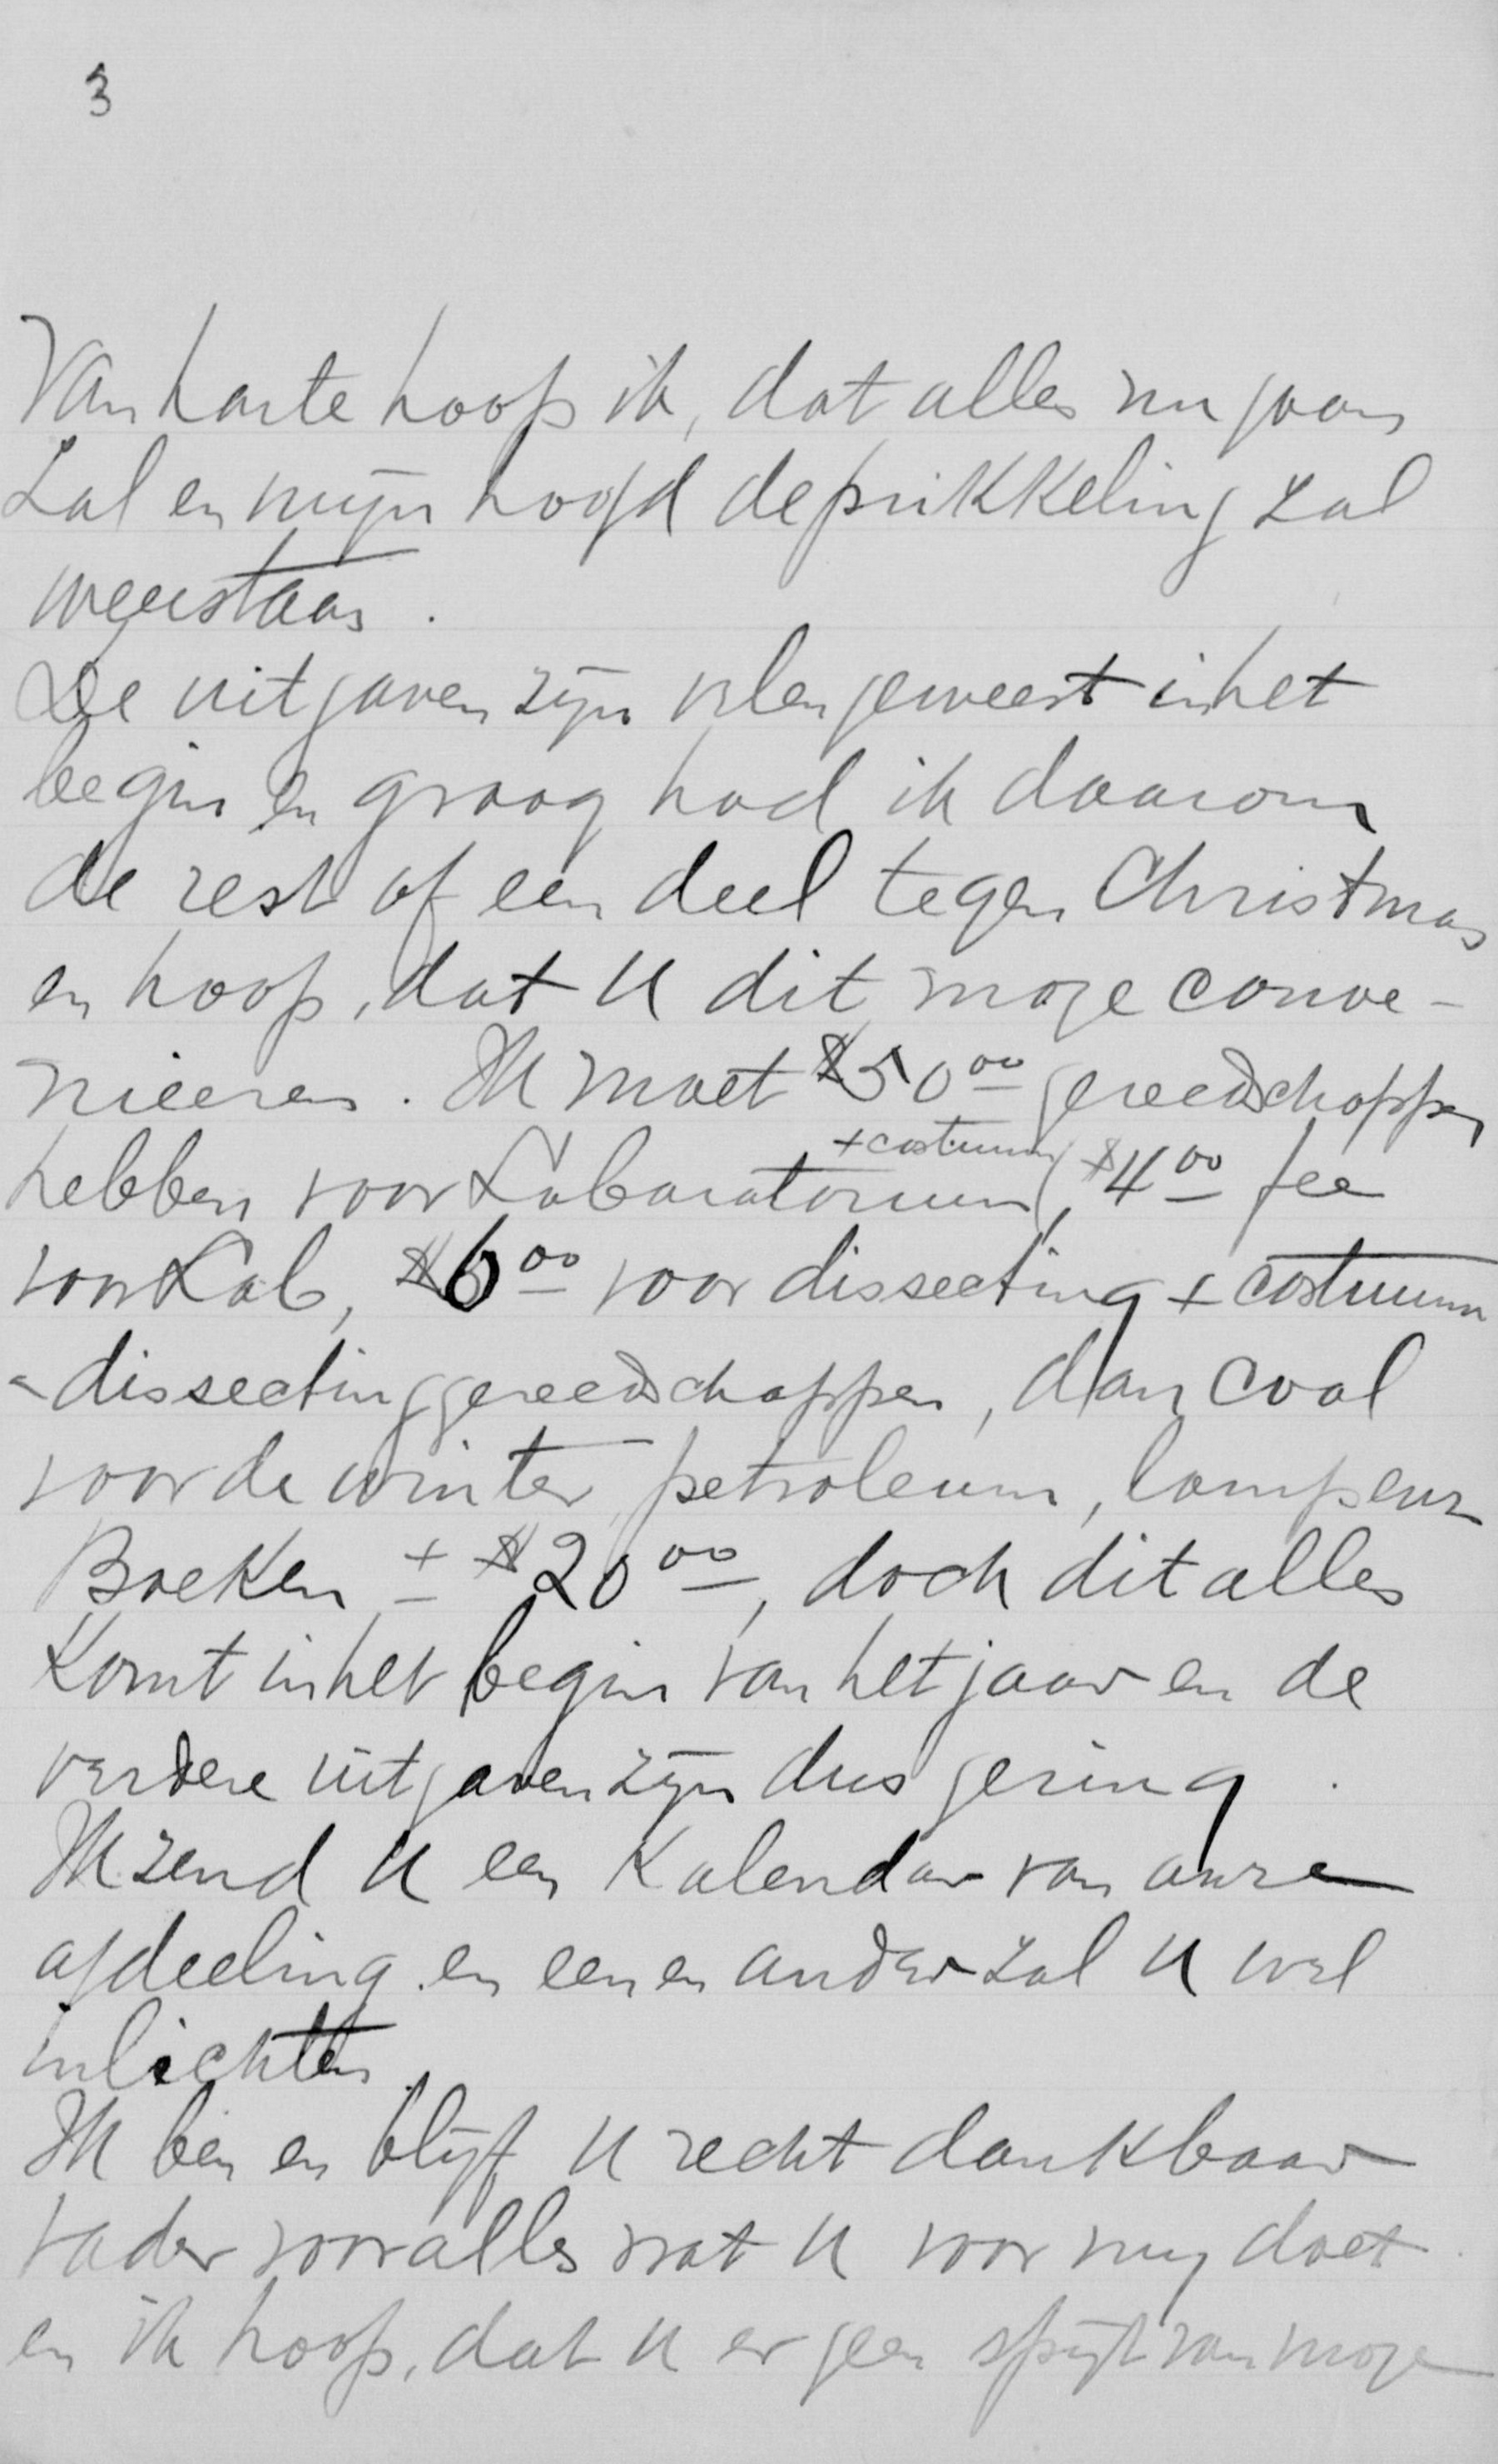 3
Van harte hoop ik, dat alles nu gaan
zal en mijn hoofd de prikkeling zal
weerstaan.
De uitgaven zijn velen geweest in het
begin en graag had ik daarom
de rest of een deel tegen Christmas
en hoop, dat U dit moge conve-
nieeren. Ik moet $50⁰⁰ gereedschappen
+ costuum
hebben voor Laboratorium, $4⁰⁰ fee
voor Lab, $6⁰⁰ voor dissecting + costuum
- dissecting gereedschappen, dan coal
voor de winter, petroleum, lamp enz
Boeken ± $20⁰⁰, doch dit alles
komt in het begin van het jaar en de
verdere uitgaven zijn dus gering.
Ik zend U een Kalendar van onze
afdeeling en een en ander zal U wel
inlichten.
Ik ben en blijf U recht dankbaar
vader voor alles wat U voor mij doet
en ik hoop, dat U er geen spijt van moge